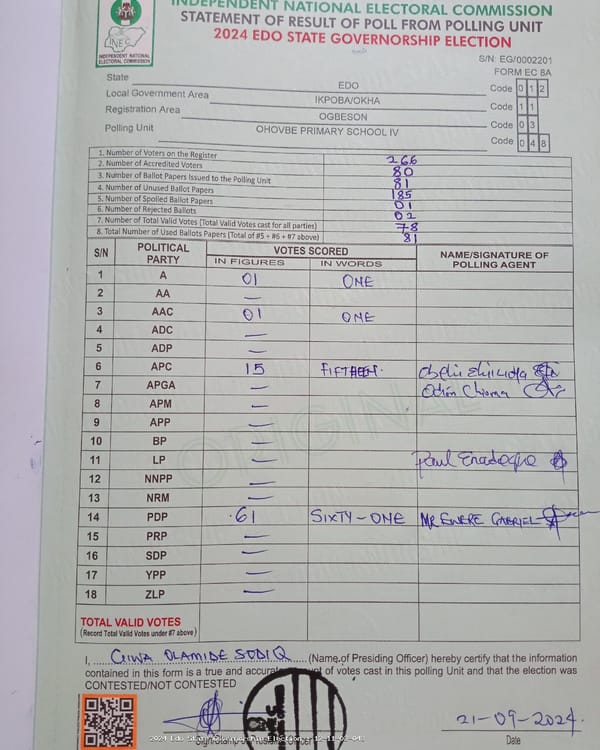 INDEPENDENT NATIONAL ELECTORAL COMMISSION
STATEMENT OF RESULT OF POLL FROM POLLING UNIT
2024 EDO STATE GOVERNORSHIP ELECTION
INEC
INDEPENDENT NATIONAL ELECTORAL COMMISSION
S/N: EG/0002201
FORM EC 8A
State EDO Code 0 1 2
Local Government Area IKPOBA/OKHA Code 1 1
Registration Area OGBESON Code 0 3
Polling Unit OHOVBE PRIMARY SCHOOL IV Code 0 4 8
1. Number of Voters on the Register 266
2. Number of Accredited Voters 80
3. Number of Ballot Papers Issued to the Polling Unit 81
4. Number of Unused Ballot Papers 185
5. Number of Spoiled Ballot Papers 01
6. Number of Rejected Ballots 02
7. Number of Total Valid Votes (Total Valid Votes cast for all parties) 78
8. Total Number of Used Ballots Papers (Total of #5 + #6 + #7 above) 81
S/N POLITICAL PARTY VOTES SCORED NAME/SIGNATURE OF POLLING AGENT
IN FIGURES IN WORDS
1 A 01 ONE
2 AA —
3 AAC 01 ONE
4 ADC —
5 ADP —
6 APC 15
7 APGA — Chioma
8 APM —
9 APP —
10 BP —
11 LP — Paul
12 NNPP —
13 NRM —
14 PDP 61 SIXTY-ONE MR EWERE GABRIEL
15 PRP —
16 SDP —
17 YPP —
18 ZLP —
TOTAL VALID VOTES
(Record Total Valid Votes under #7 above)
I, GIWA OLAMIDE SODIQ (Name of Presiding Officer) hereby certify that the information
contained in this form is a true and accurate of votes cast in this polling Unit and that the election was
CONTESTED/NOT CONTESTED
ORIGINAL
21-09-2024
Date